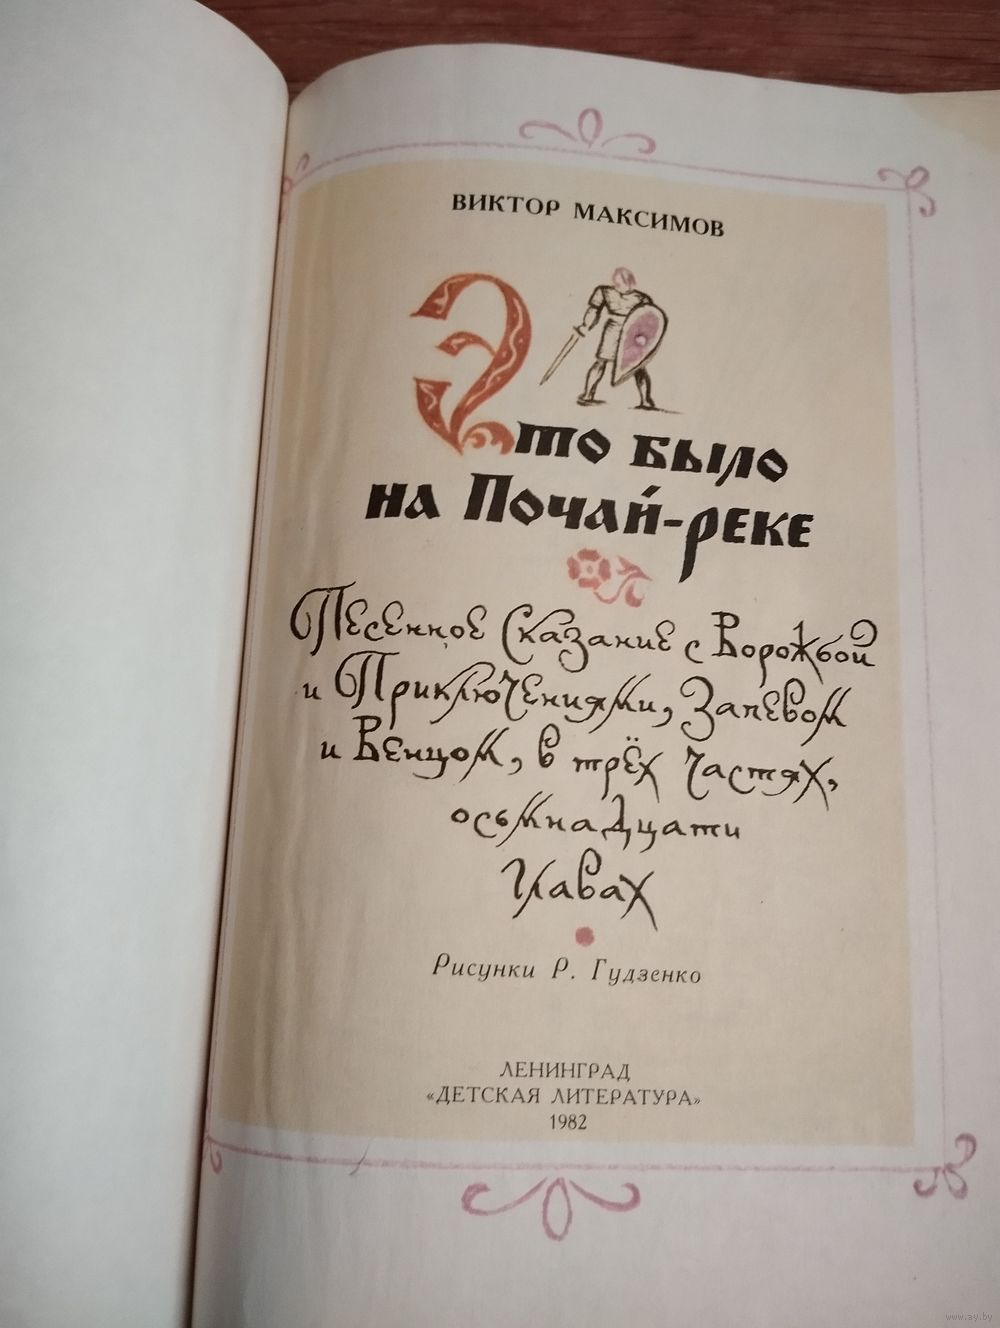 ВИКТОР МАКСИМОВ
Это было
на Почай-реке
Песенное Сказание с Ворожбой
и Приключениями, Запевом
и Венцом, в трёх частях,
осьмнадцати
Главах
Рисунки Р. Гудзенко
ЛЕНИНГРАД
«ДЕТСКАЯ ЛИТЕРАТУРА»
1982
www.ay.by